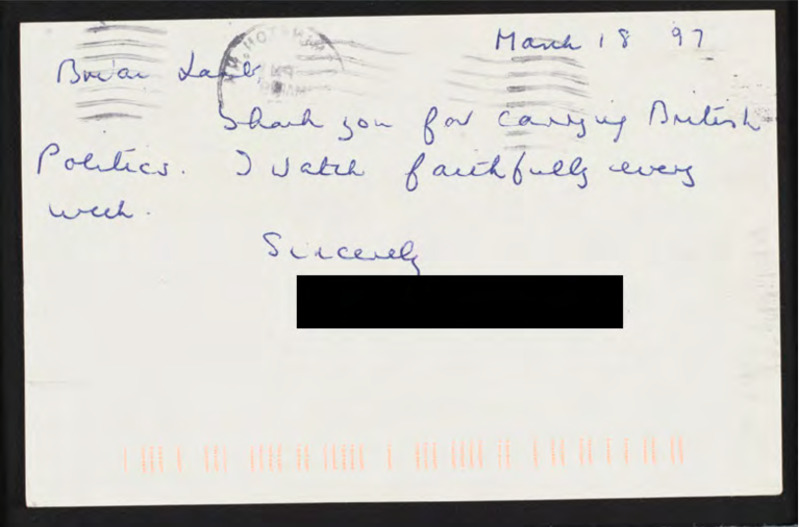 March 18 97
Brian Lamb
Thank you for carrying British
Politics. I watch faithfully every
week.
Sincerely